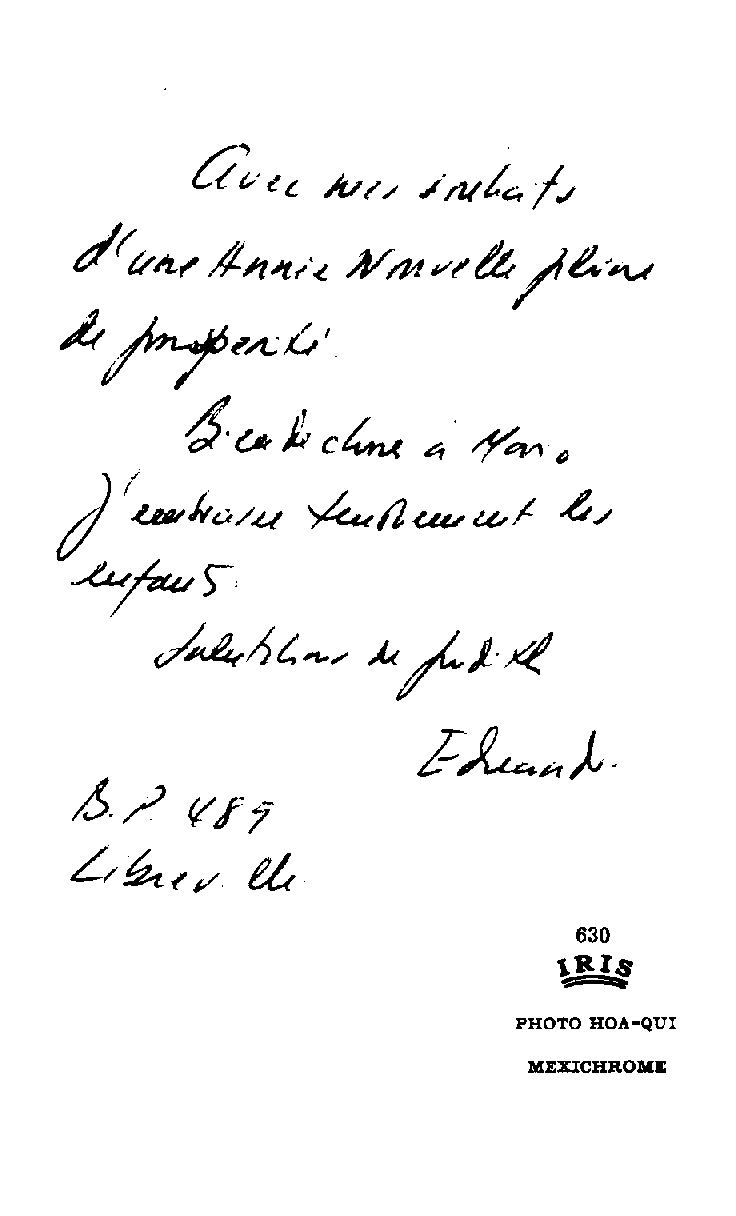 Avec mes souhaits
d'une Année Nouvelle pleine
de prospérité.
Bien de chose à
J'embrasse tendrement les
enfants.
Salutations de Judith
Edouard.
B.P. 489
Libreville
630
IRIS
PHOTO HOA-QUI
MEXICHROME